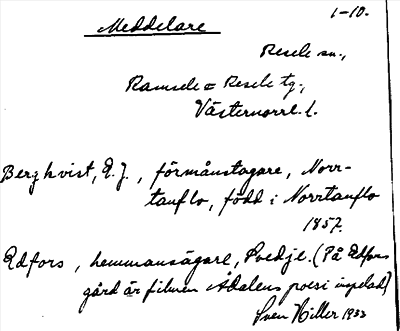 1-10.
Meddelare
Resele sn.,
Ramsele o Resele tg.,
Västernorrl. l.
Berghvist, E. J., förmånstagare, Norr-
tanflo, född i Norrtanflo
1857.
Edfors, hemmansägare, Svedje. (På Edfors
gård är filmen Ådalens poesi inspelad)
Sven Hiller 1933